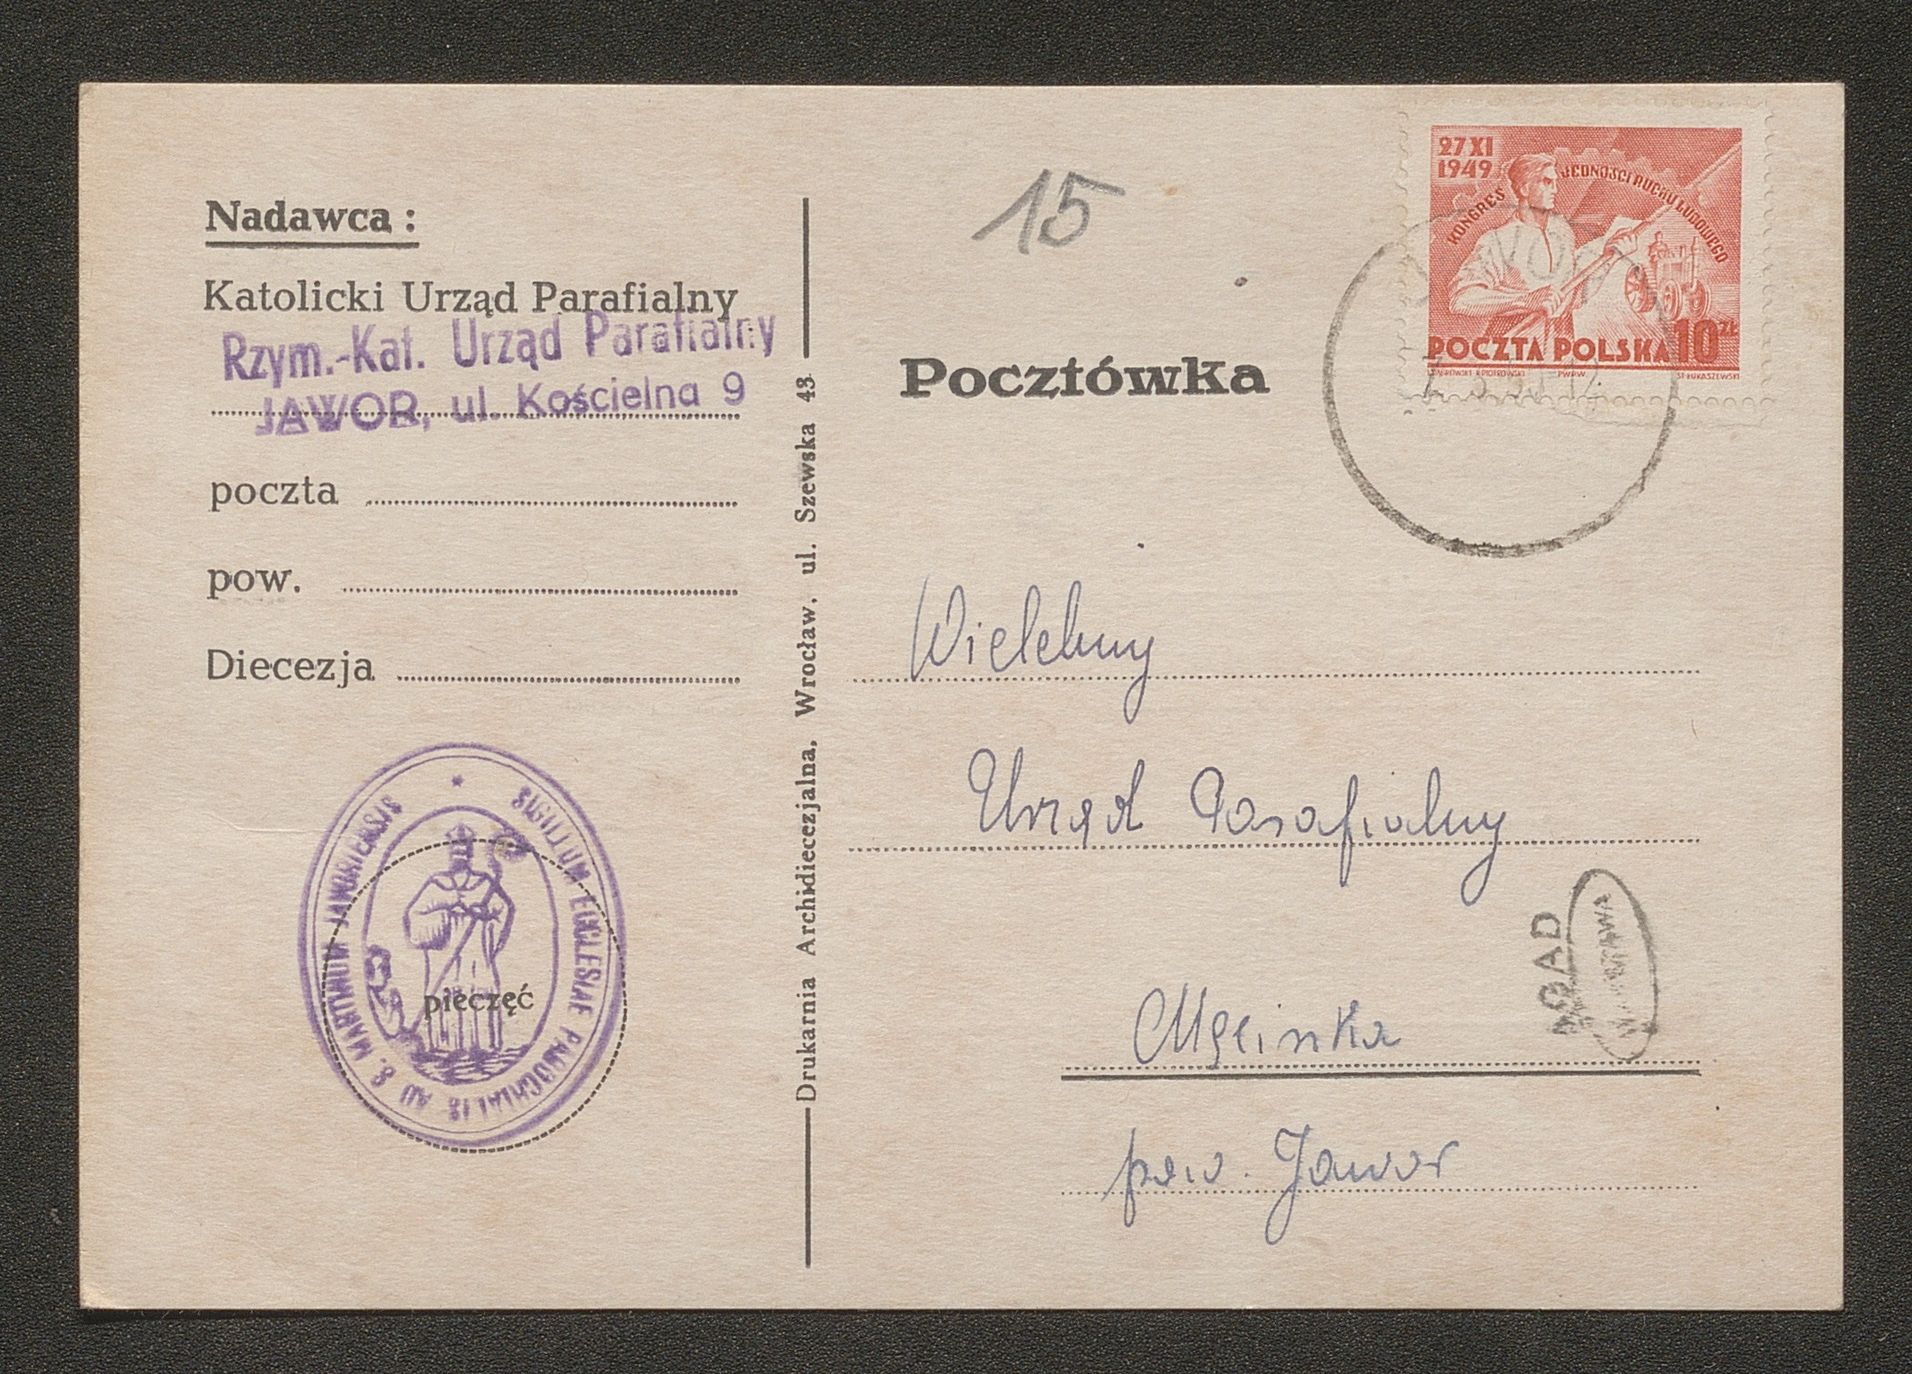 Nadawca :
Katolicki Urząd Parafialny
Rzym.-Kat. Urząd Parafialny
JAWOR, ul. Kościelna 9
poczta
pow.
Diecezja
SIGILLUM ECCLESIAE PAROCHIALIS AD S. MARTINUM JAWORIENSIS
pieczęć
Drukarnia Archidiecezjalna, Wrocław, ul. Szewska 43
15
Pocztówka
27 XI
1949
KONGRES JEDNOŚCI RUCHU LUDOWEGO
POCZTA POLSKA 10 ZŁ
PWPW
ST. ŁUKASZEWSKI
JAWOR
Wielebny
Urząd Parafialny
Męcinka
pow. Jawor